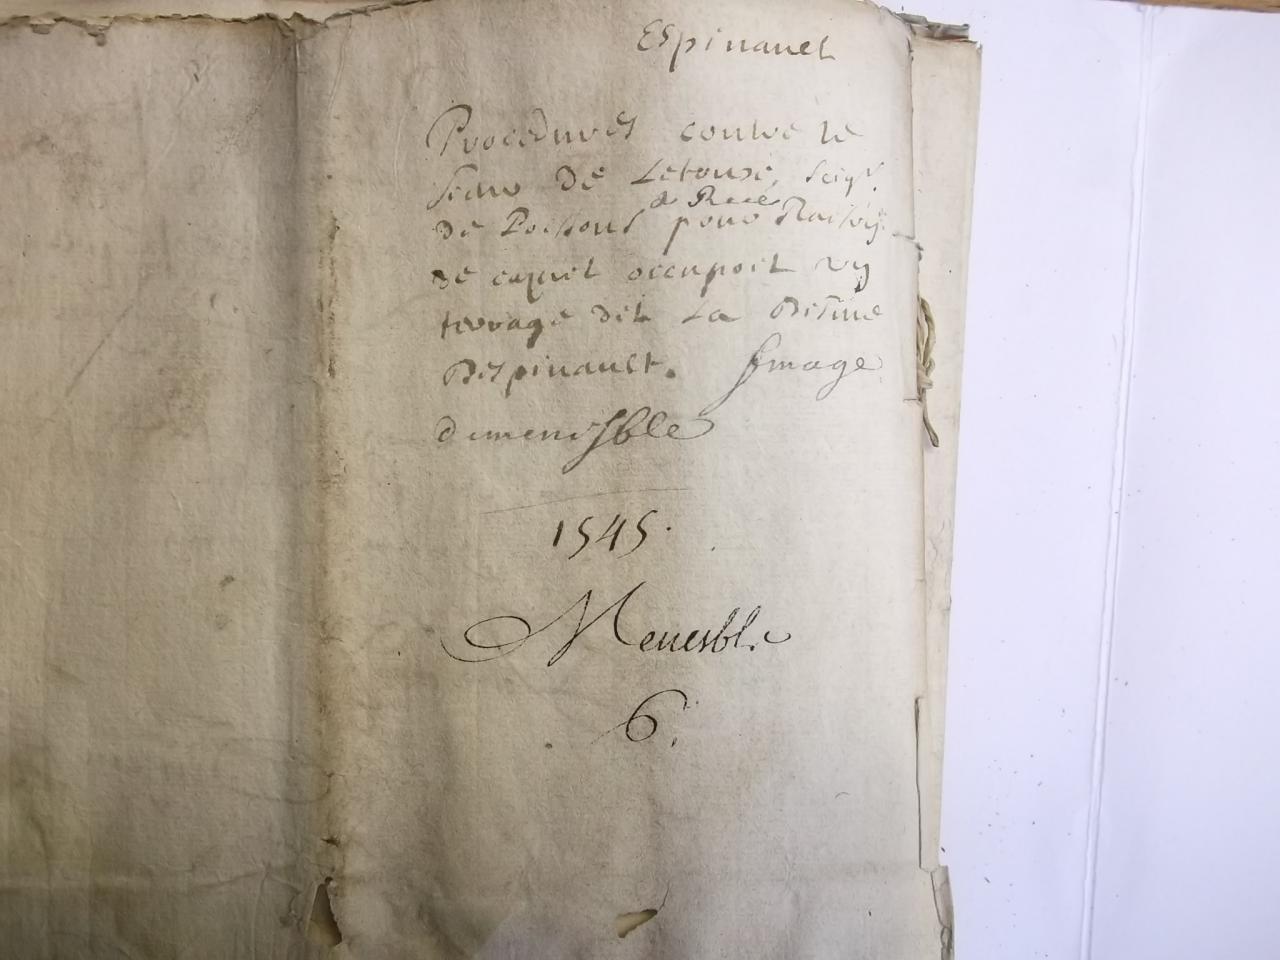 Espinauet
Procedures contre le
sieur de Letouzé, seigr.
de Poissons pour Raison
de cequel occupoit un
terrage dit La Disme
Despinault. fimage
dumenisble
1545.
Menesble
6.